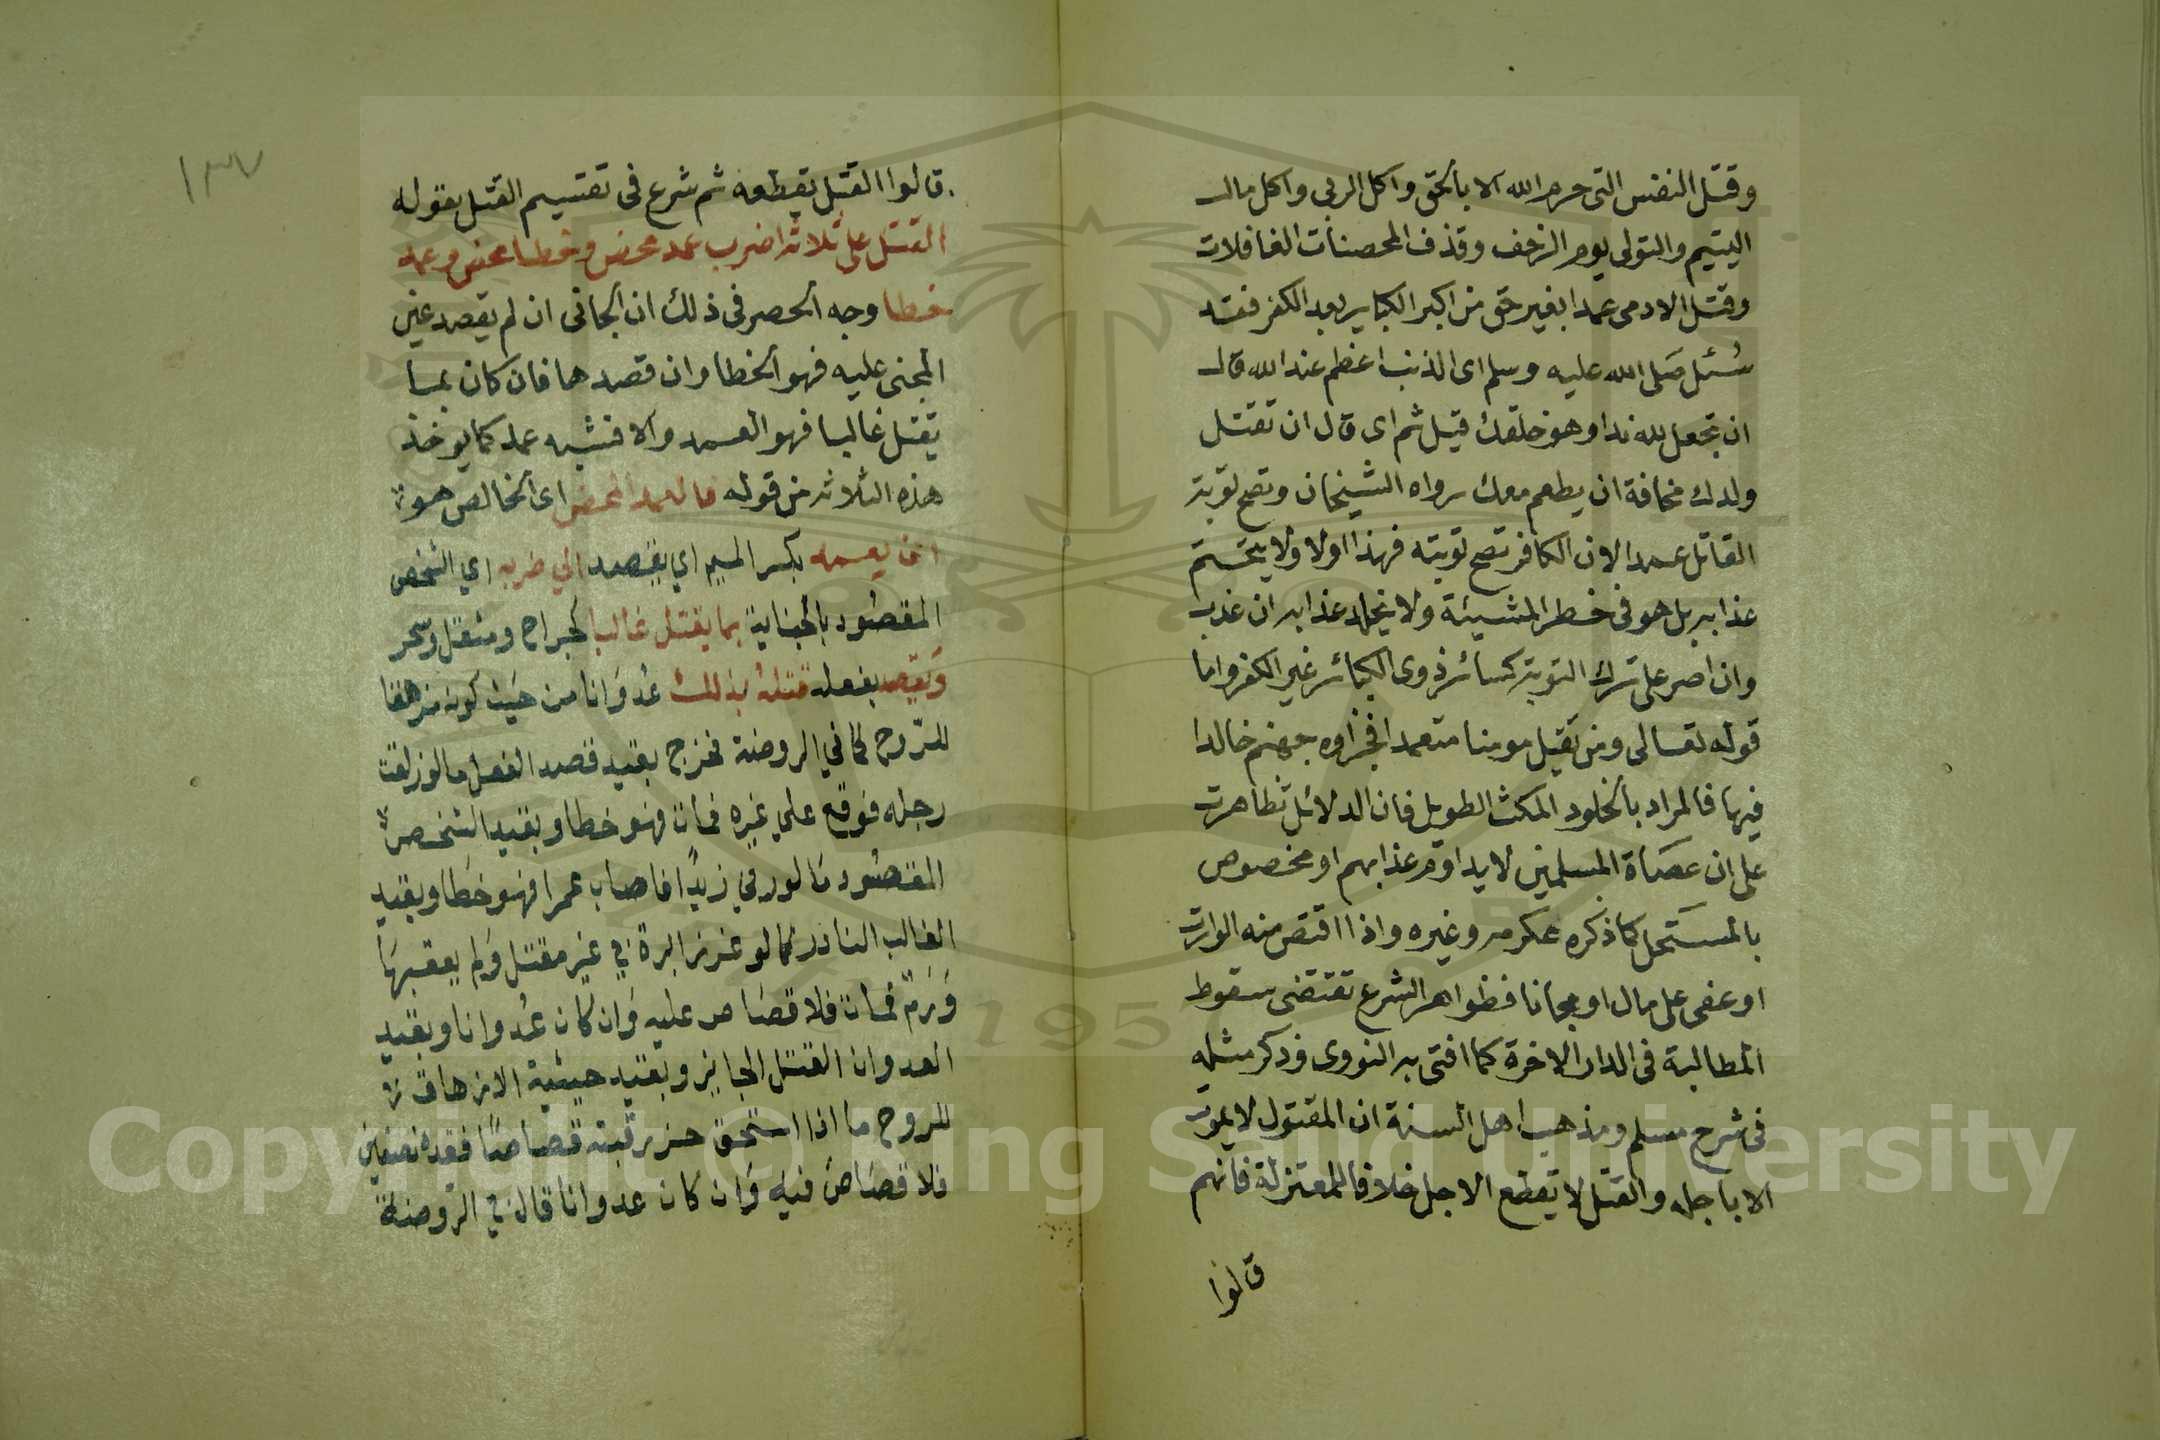 وقتل النفس التي حرم الله الا بالحق واكل الربى واكل مال
اليتيم والتولى يوم الزحف وقذف المحصنات الغافلات
وقتل الادمى عمدا بغير حق من اكبر الكباير بعد الكفر فقد
سُئل صَلى الله عليه وسلم اى الذنب اعظم عند الله قال
ان تجعل لله ندا وهو خلقك قيل ثم اى قال ان تقتل
ولدك مخافة ان يطعم معك رواه الشيخان وتصح توبة
القاتل عمدا لان الكافر تصح توبته فهذا اولا ولا يتحتم
عذابه بل هو فى خطر المشيئة ولا يخلد عذابه ان عذب
وان اصر على ترك التوبة كسائر ذوى الكبائر غير الكفر واما
قوله تعالى ومن يقتل مومنا متعمدا فجزاوه جهنم خالدا
فيها فالمراد بالخلود المكث الطويل فان الدلائل تظاهرت
على ان عصَاة المسلمين لا يداوم عذابهم او مخصوص
بالمستَحل كما ذكره عكرمه وغيره واذا اقتص منه الوارث
او عفى على مال او مجانا فظواهر الشرع تقتضى سقوط
المطالبة فى الدار الاخرة كما افتى به النووى وذكر مثله
فى شرح مسلم ومذهب اهل السنة ان المقتول لا يموت
الا باجله والقتل لا يقطع الاجل خلافا للمعتزلة فانهم
قالوا
١٣٧
قالوا القتل يقطعه ثم شرع فى تقسيم القتل بقوله
القتل على ثلاثة اضرب عمد محض وخطا محض وعمد
خطا وجه الحصر فى ذلك ان الجانى ان لم يقصد عين
المجنى عليه فهو الخطا وان قصدها فان كان بما
يقتل غالبا فهو العمد والا فشبه عمد كما يوخذ
هذه الثلاثة من قوله فالعمد المحض اى الخالص هو
ان يعمد بكسر الميم اي يقصد الي ضربه اي الشخص
المقصُود بالجناية بما يقتل غالبا كجراح ومثقل وسحر
وَيقصد بفعله قتلهُ بذلك عُدوَانا من حَيث كونه مزهقا
للرّوح كما في الروضة فخرج بقيد قصد الفعل ما لو زلقت
رجله فوقع علي غيره فمات فهو خطا وبقيد الشخص
المقصُود مَا لو رمي زيدًا فاصاب عمرا فهو خطَا وبقيد
الغالب النادر كما لو غرز ابرة في غير مقتل وَلم يعقبهَا
وَرَم فمات فلا قصَاص عليه وَان كان عُدوانا وبقيد
العدوان القتل الجايز وبقيد حيثية الازهاق
للروح ما اذا استحق حز رقبته قصاصًا فقده نصفين
فلا قصَاصَ فيه وَان كان عدوانا قال في الروضة
Copyright © King Saud University
195